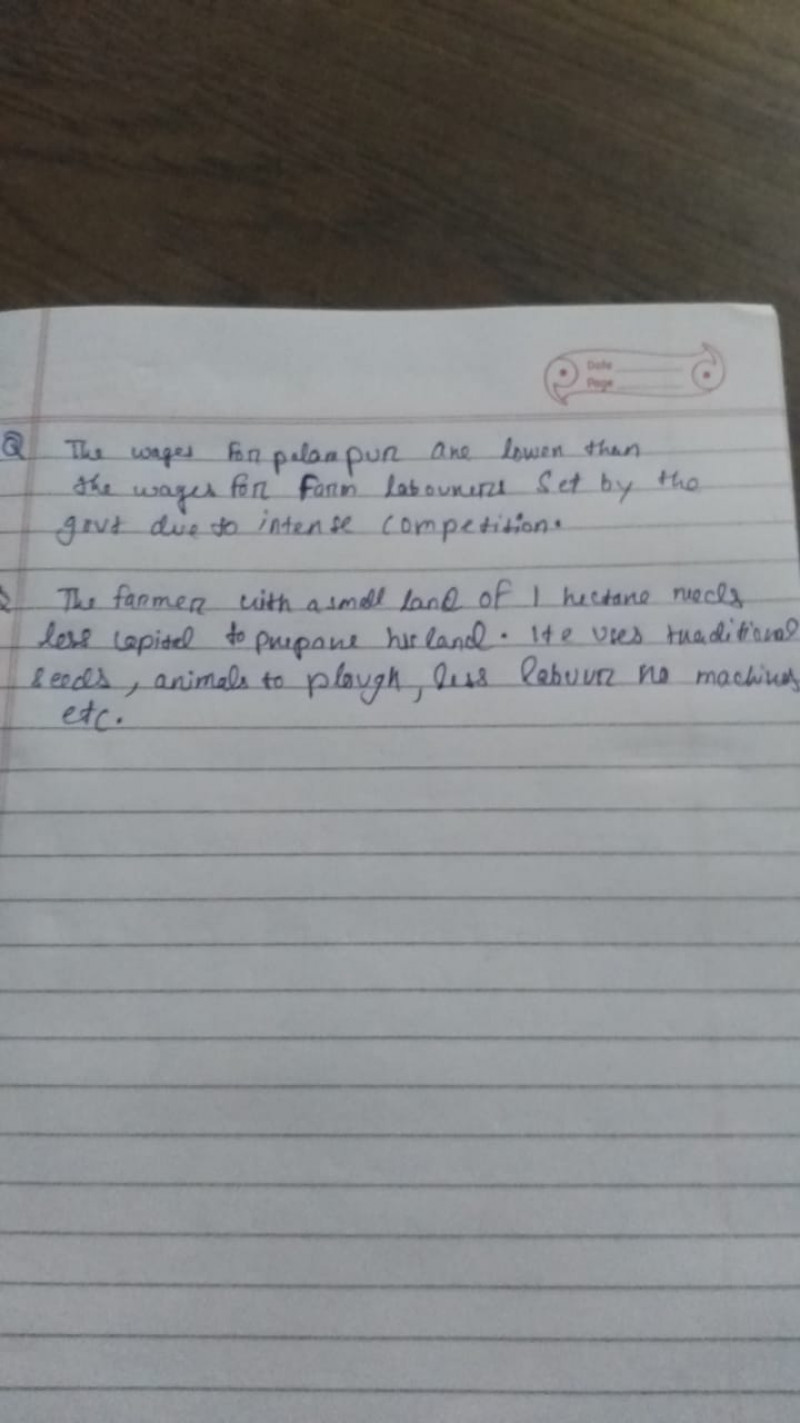 Date
Page
Q The wages for palampur are lower than
the wages for farm labourers set by the
govt due to intense competition.
The farmer with a small land of 1 hectare needs
less capital to prepare his land. He uses traditional
seeds, animals to plough, less labour no machines
etc.